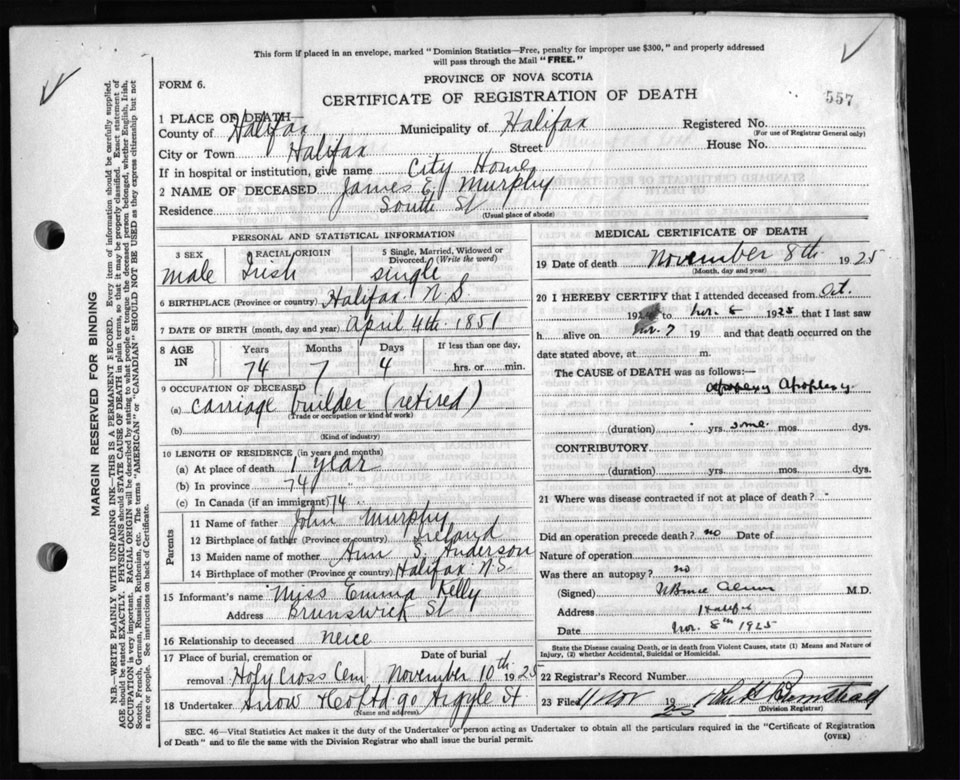 This form if placed in an envelope, marked "Dominion Statistics—Free, penalty for improper use $300," and properly addressed
will pass through the Mail "FREE."
PROVINCE OF NOVA SCOTIA
FORM 6.
CERTIFICATE OF REGISTRATION OF DEATH
557
1 PLACE OF DEATH
County of Halifax Municipality of Halifax Registered No.
(For use of Registrar General only)
City or Town Halifax Street House No.
If in hospital or institution, give name City Home
2 NAME OF DECEASED James E. Murphy
Residence South St
(Usual place of abode)
PERSONAL AND STATISTICAL INFORMATION
3 SEX 4 RACIAL ORIGIN 5 Single, Married, Widowed or Divorced (Write the word)
male Irish single
6 BIRTHPLACE (Province or country) Halifax N.S.
7 DATE OF BIRTH (month, day and year) April 4th. 1851
8 AGE IN Years Months Days If less than one day,
74 7 4 hrs. or min.
9 OCCUPATION OF DECEASED
(a) Carriage builder (retired)
(Trade or occupation or kind of work)
(b)
(Kind of industry)
10 LENGTH OF RESIDENCE (in years and months)
(a) At place of death 1 year
(b) In province 74 "
(c) In Canada (if an immigrant) 74 "
Parents
11 Name of father John Murphy
12 Birthplace of father (Province or country) Ireland
13 Maiden name of mother Ann S. Anderson
14 Birthplace of mother (Province or country) Halifax N.S.
15 Informant's name Miss Emma Kelly
Address Brunswick St
16 Relationship to deceased neice
17 Place of burial, cremation or removal Date of burial
Holy Cross Cem November 10th 1925
18 Undertaker Snow & Co Ltd 90 Argyle St
(Name and address)
MEDICAL CERTIFICATE OF DEATH
19 Date of death November 8th 1925
(Month, day and year)
20 I HEREBY CERTIFY that I attended deceased from Oct.
1924 to Nov. 8 1925 that I last saw
h alive on Nov. 7 19 and that death occurred on the
date stated above, at m.
The CAUSE of DEATH was as follows:—
apoplexy Apoplexy
(duration) yrs. some mos. dys.
CONTRIBUTORY
(duration) yrs. mos. dys.
21 Where was disease contracted if not at place of death?
Did an operation precede death? no Date of
Nature of operation
Was there an autopsy? no
(Signed) M.D.
Address Halifax
Date Nov. 8th 1925
State the Disease causing Death, or in death from Violent Causes, state (1) Means and Nature of Injury, (2) whether Accidental, Suicidal or Homicidal.
22 Registrar's Record Number
23 Filed 11 Nov 1925
(Division Registrar)
SEC. 46—Vital Statistics Act makes it the duty of the Undertaker or person acting as Undertaker to obtain all the particulars required in the "Certificate of Registration
of Death" and to file the same with the Division Registrar who shall issue the burial permit. (OVER)
MARGIN RESERVED FOR BINDING
N.B.—WRITE PLAINLY WITH UNFADING INK—THIS IS A PERMANENT RECORD. Every item of information should be carefully supplied.
AGE should be stated EXACTLY. PHYSICIANS should STATE CAUSE OF DEATH in plain terms, so that it may be properly classified. Exact statement of
OCCUPATION is very important. RACIAL ORIGIN will be described by stating to what people or tongue the deceased person belonged, whether English, Irish,
Scotch, French, German, Russian, Ruthenian, etc. The terms "AMERICAN" or "CANADIAN" SHOULD NOT BE USED as they express citizenship but not
a race or people. See instructions on back of Certificate.